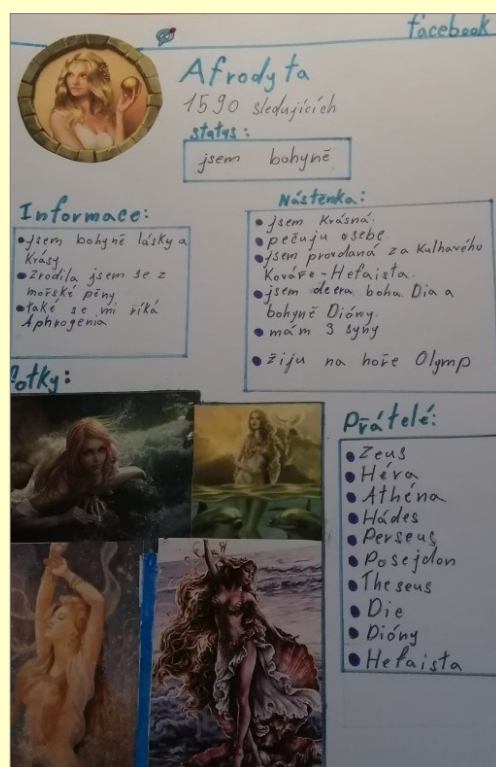 facebook
Afrodyta
1590 sledujících
status:
jsem bohyně
Informace:
• jsem bohyně lásky a
Krásy
• Zrodila jsem se z
mořské pěny
• také se mi říká
Aphrogenia
Nástěnka:
• jsem Krásná.
• pečuju osebe.
• jsem provdaná za Kulhavého
Kováře - Hefaista.
• jsem dcera boha Dia a
bohyně Dióny.
• mám 3 syny
• žiju na hoře Olymp
Fotky:
Přátelé:
• Zeus
• Héra
• Athéna
• Hádes
• Perseus
• Posejdon
• Theseus
• Die
• Dióny
• Hefaista